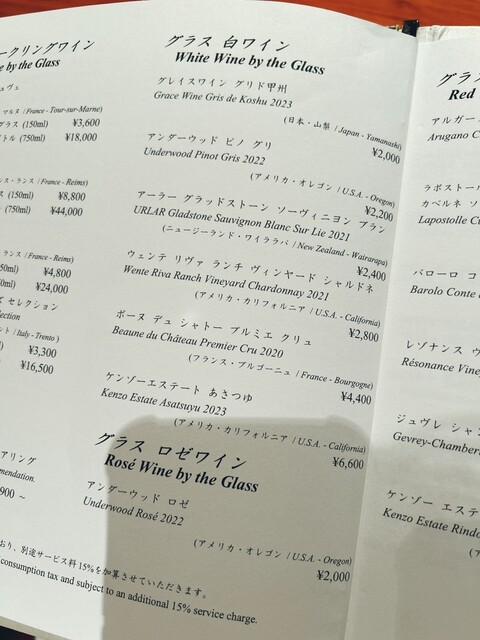 ークリングワイン
e by the Glass
ュヴェ
マルヌ / France - Tour-sur-Marne)
グラス (150ml) ¥3,600
トル (750ml) ¥18,000
ンス・ランス / France - Reims)
ス (150ml) ¥8,800
(750ml) ¥44,000
ランス / France - Reims)
50ml) ¥4,800
50ml) ¥24,000
セレクション
lection
ント / Italy - Trento )
ml) ¥3,300
ml) ¥16,500
アリング
mendation.
900 ~
グラス 白ワイン
White Wine by the Glass
グレイスワイン グリド甲州
Grace Wine Gris de Koshu 2023
(日本・山梨 / Japan - Yamanashi)
¥2,000
アンダーウッド ピノ グリ
Underwood Pinot Gris 2022
(アメリカ・オレゴン / U.S.A. - Oregon)
¥2,200
アーラー グラッドストーン ソーヴィニヨン ブラン
URLAR Gladstone Sauvignon Blanc Sur Lie 2021
(ニュージーランド・ワイララパ / New Zealand - Wairarapa)
¥2,400
ウェンテ リヴァ ランチ ヴィンヤード シャルドネ
Wente Riva Ranch Vineyard Chardonnay 2021
(アメリカ・カリフォルニア / U.S.A. - California)
¥2,800
ボーヌ デュ シャトー プルミエ クリュ
Beaune du Château Premier Cru 2020
(フランス・ブルゴーニュ / France - Bourgogne)
¥4,400
ケンゾーエステート あさつゆ
Kenzo Estate Asatsuyu 2023
(アメリカ・カリフォルニア / U.S.A. - California)
¥6,600
グラス ロゼワイン
Rosé Wine by the Glass
アンダーウッド ロゼ
Underwood Rosé 2022
(アメリカ・オレゴン / U.S.A. - Oregon)
¥2,000
おり、別途サービス料15%を加算させていただきます。
consumption tax and subject to an additional 15% service charge.
グラ
Red
アルガー
Arugano C
ラポストー
カベルネ ソ
Lapostolle Cu
バローロ コ
Barolo Conte
レゾナンス
Résonance Vine
ジュヴレ シャン
Gevrey-Chamber
ケンゾー エステ
Kenzo Estate Rindo
(ア